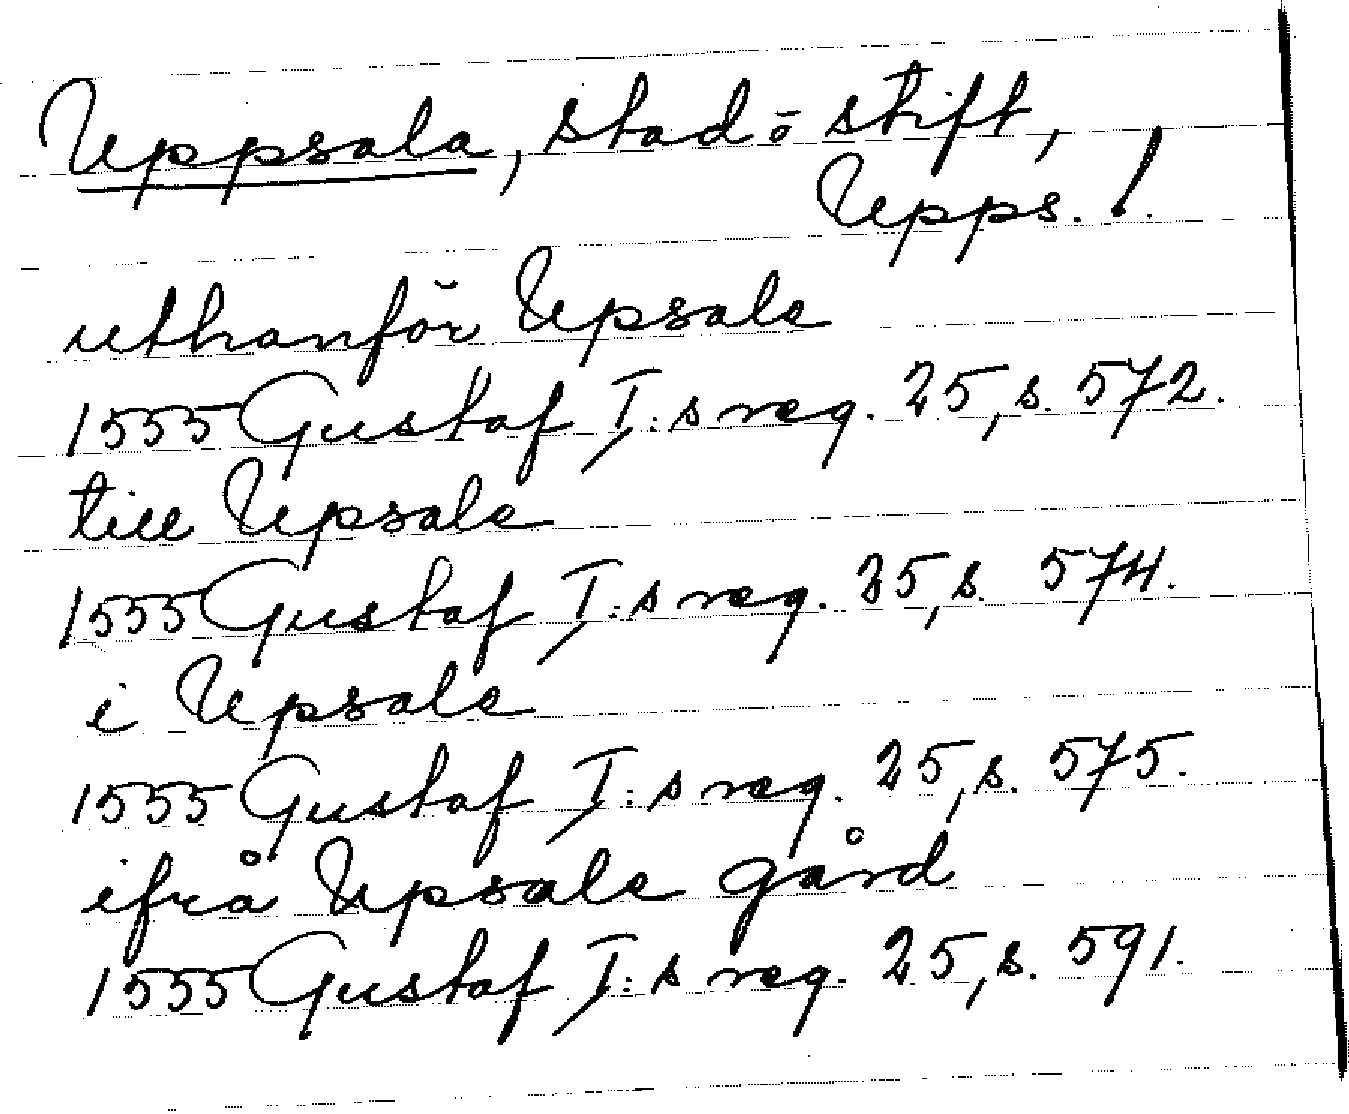 Uppsala, stad o stift,
Upps. l.
uthanför Upsale
1555 Gustaf I:s reg. 25, s. 572.
till Upsale
1555 Gustaf I:s reg. 25, s. 574.
i Upsale
1555 Gustaf I:s reg. 25, s. 575.
ifrå Upsale gård
1555 Gustaf I:s reg. 25, s. 591.